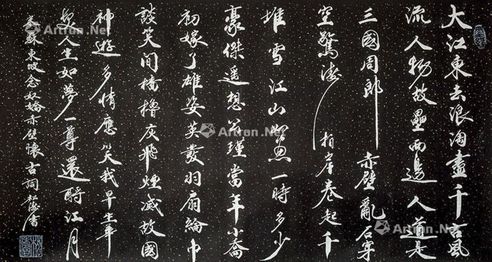 大江東去浪淘盡千古風
流人物故壘西邊人道是
三國周郎赤壁亂石穿
空驚濤拍岸卷起千
堆雪江山如畫一時多少
豪傑遙想公瑾當年小喬
初嫁了雄姿英發羽扇綸巾
談笑間檣櫓灰飛煙滅故國
神遊多情應笑我早生華
髮人生如夢一尊還酹江月
蘇東坡念奴嬌赤壁懷古詞 書
Artron.Net
Artron.Net
Artron.Net
Artron.Net